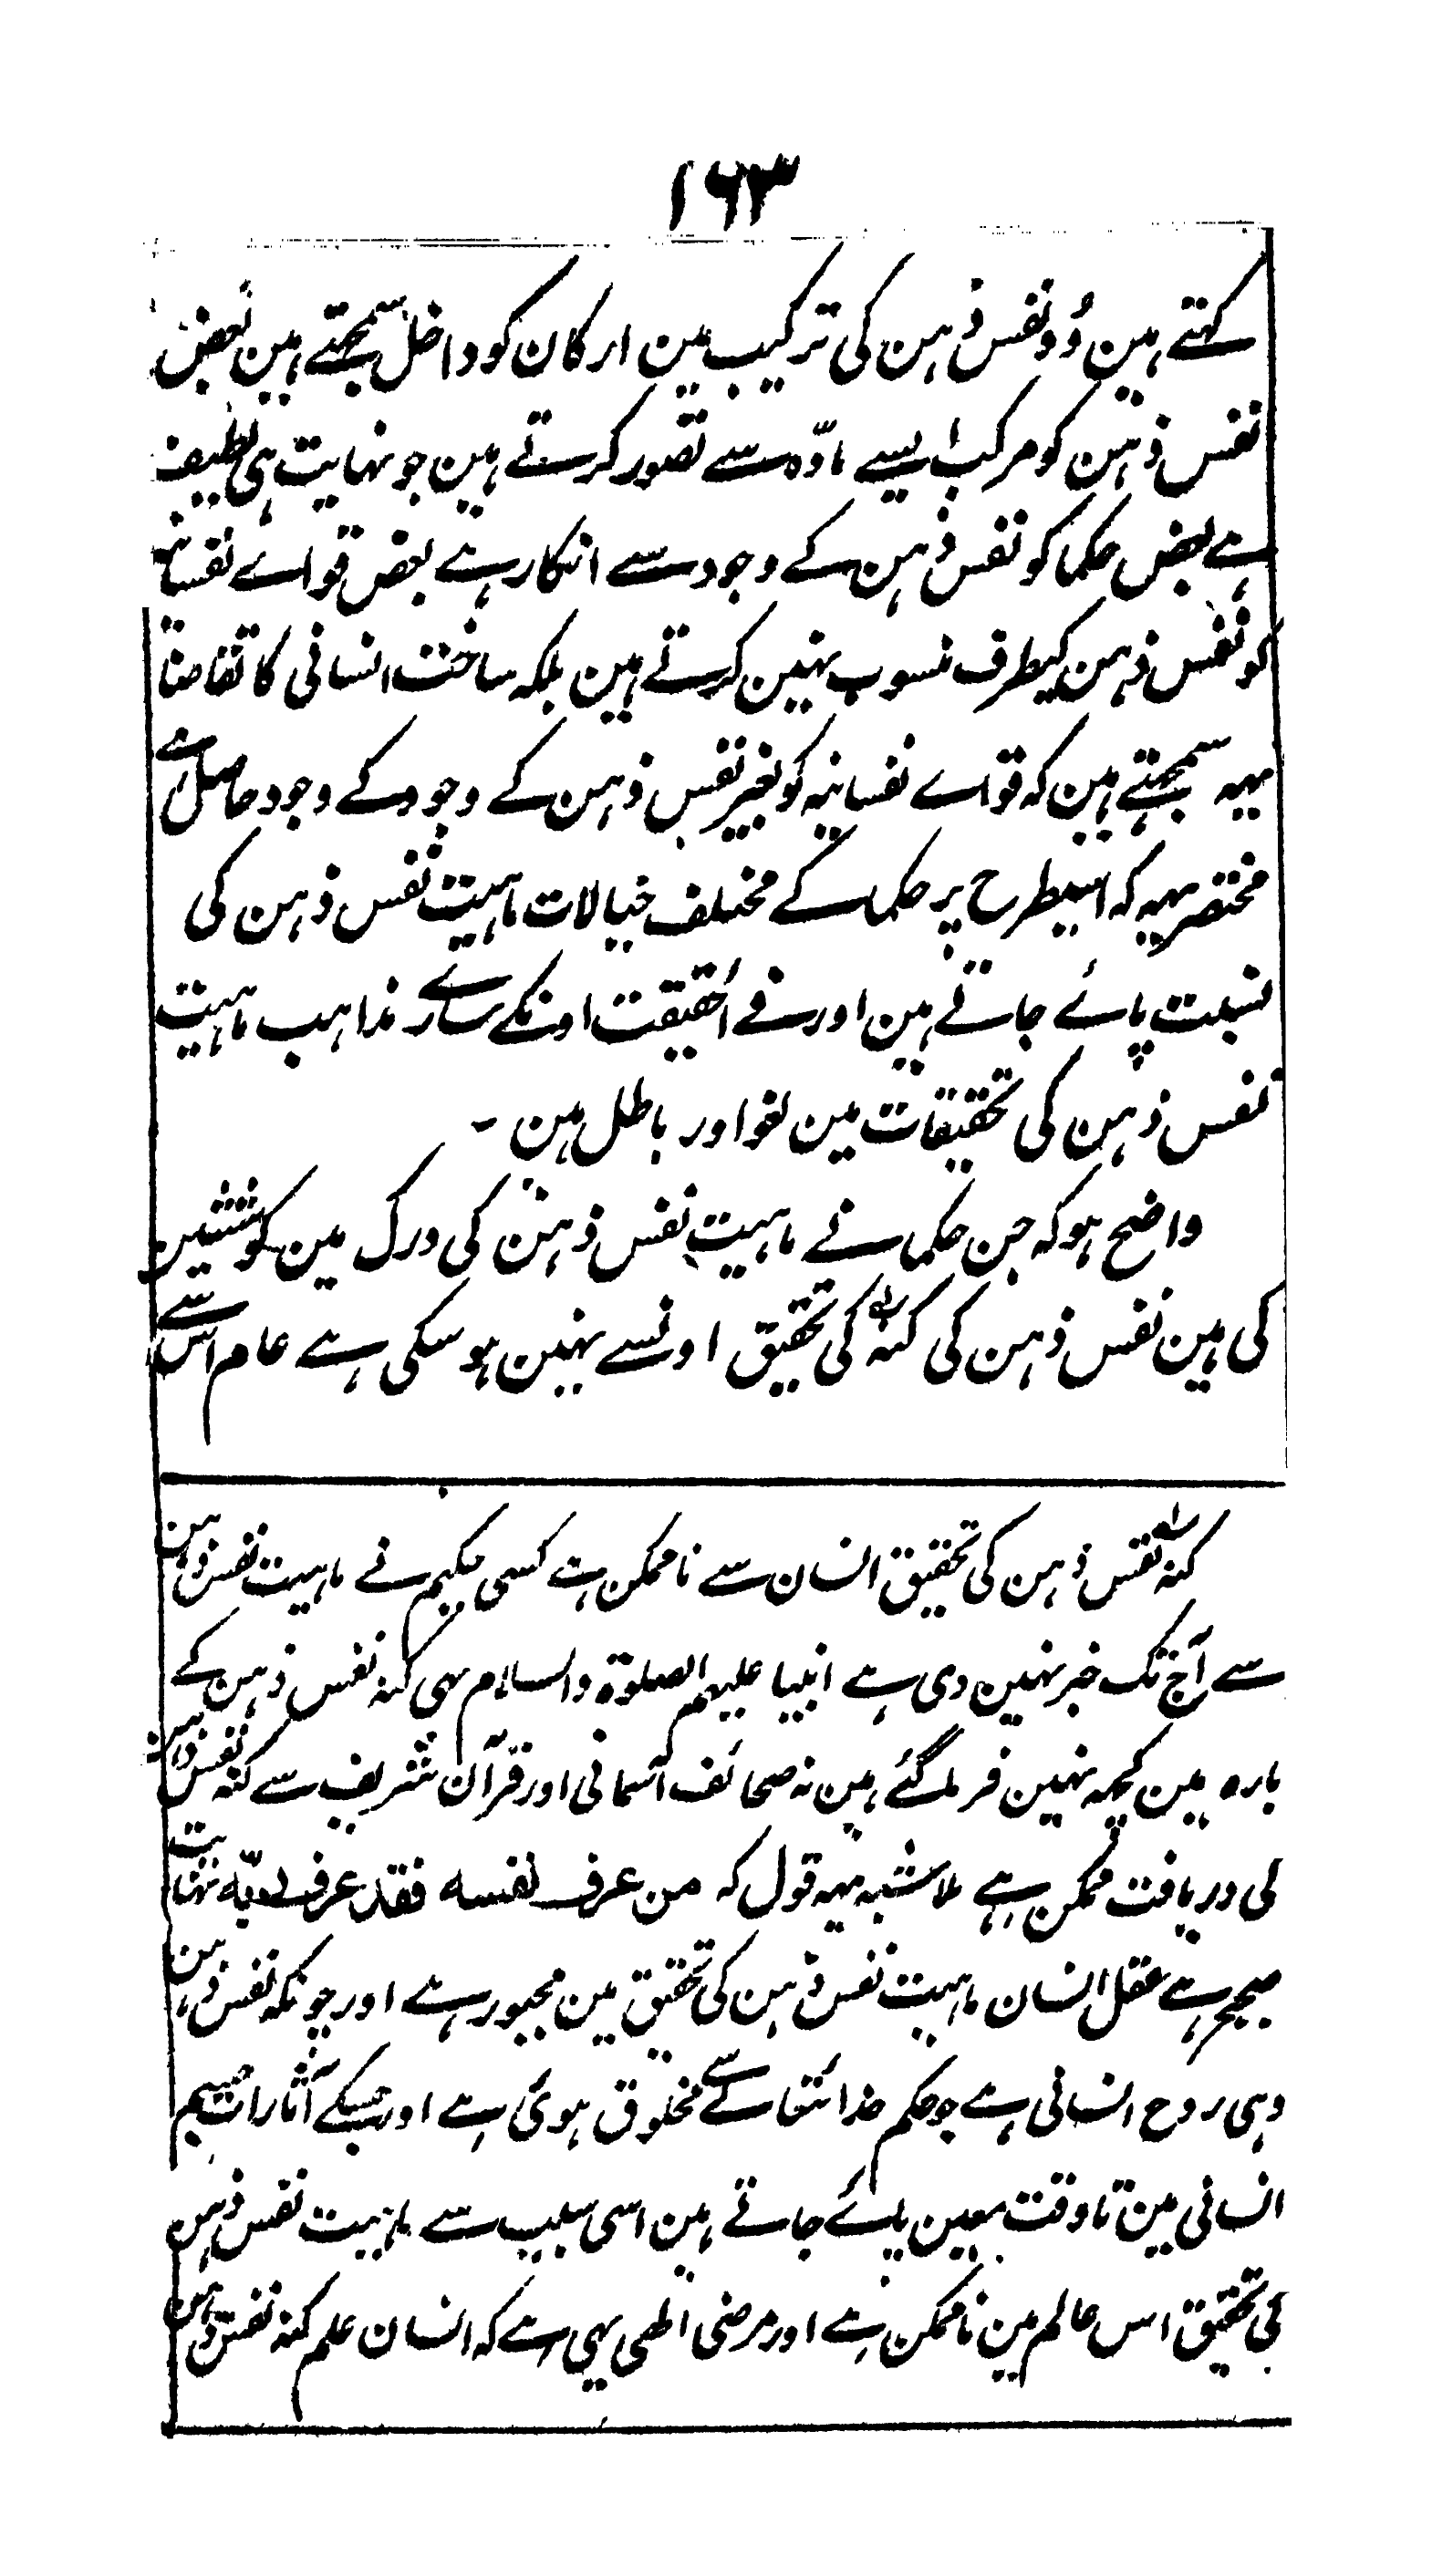 ۱۶۳
کہتے ہین وُو نفس ذہن کی ترکیب مین ارکان کو داخل سمجھتے ہین بعض
نفس ذہن کو مرکب ایسے مادّہ سے تصور کرتے ہین جو نہایت ہی لطیف
ہے بعض حکما کو نفس ذہن کے وجود سے انکار ہے بعض قواے نفسانیہ
کو نفس ذہن کیطرف منسوب نہین کرتے ہین بلکہ ساخت انسانی کا تقاضا
یہہ سمجھتے ہین کہ قواے نفسانیہ کو بغیر نفس ذہن کے وجود کے وجود حاصل ہے
مختصر یہہ کہ اسیطرح پر حکما کے مختلف خیالات ماہیت نفس ذہن کی
نسبت پائے جاتے ہین اور فے الحقیقت اونکے سارے مذاہب ماہیت
نفس ذہن کی تحقیقات مین لغو اور باطل ہین ۔
واضح ہو کہ جن حکما نے ماہیت نفس ذہن کی درک مین کوششین
کی ہین نفس ذہن کی کنہ کی تحقیق اونسے نہین ہو سکی ہے عام اس سے
کنہ نفس ذہن کی تحقیق انسان سے ناممکن ہے کسی حکیم نے ماہیت نفس ذہن
سے آج تک خبر نہین دی ہے انبیا علیہم الصلوۃ والسلام بھی کنہ نفس ذہن کے
بارہ مین کچہہ نہین فرماگئے ہین نہ صحائف آسمانی اور قرآن شریف سے کنہ نفس ذہن
کی دریافت ممکن ہے بلا شبہ یہہ قول کہ من عرف نفسہ فقد عرف ربّہ نہایت
صحیح ہے عقل انسان ماہیت نفس ذہن کی تحقیق مین مجبور ہے اور چونکہ نفس ذہن
وہی روح انسانی ہے جو حکم خدائتعالے سے مخلوق ہوئی ہے اور جسکے آثارات جسم
انسانی مین تا وقت معین پائے جاتے ہین اسی سبب سے ماہیت نفس ذہن
کی تحقیق اس عالم مین ناممکن ہے اور مرضی الٰہی یہی ہے کہ انسان علم کنہ نفس ذہن